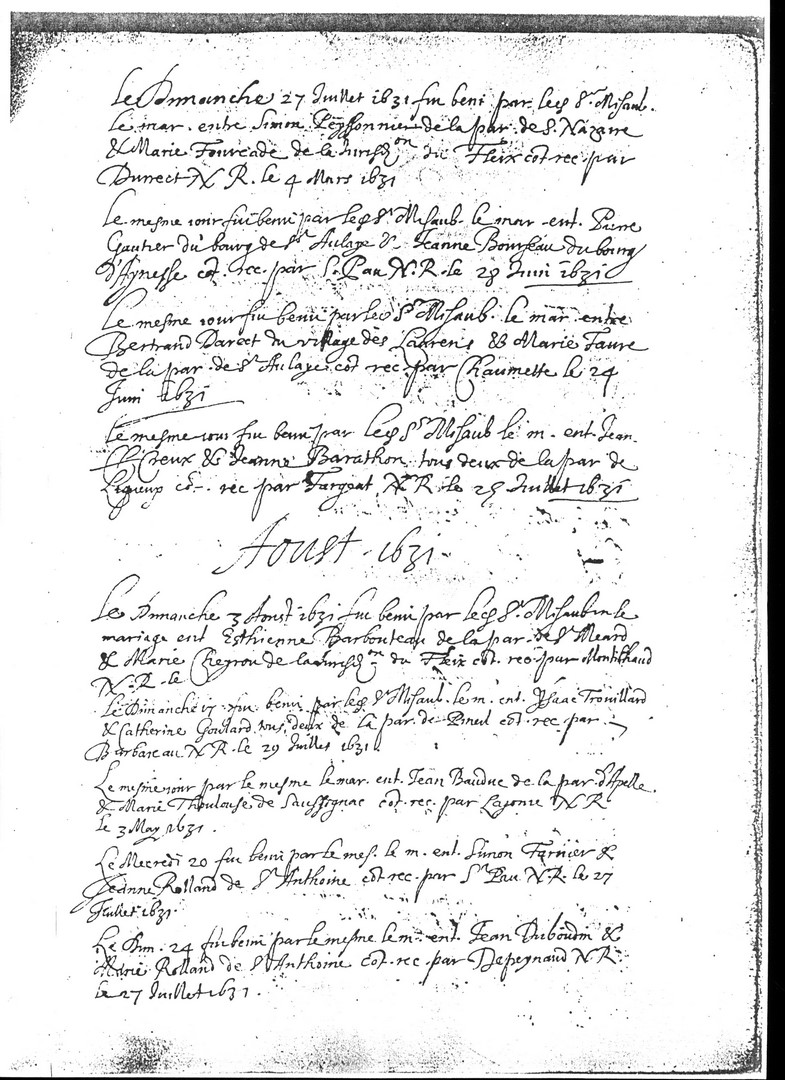 Le Dimanche 27 Juillet 1631 fut beni par led Sr. Misaub.
le mar. entre Simon Peyssonnier de la par. de S. Nazaire
& Marie Fourcade de la Jurisdon du Fleix cot. rec. par
Durrect N R. le 4 Mars 1631
Le mesme jour fut beni par led Sr Misaub. le mar. ent. Pierre
Gautier du bourg de St Aulaye & Jeanne Bourseau du bourg
d'Aynesse cot. rec. par S. Pau N. R. le 28 Juin 1631
Le mesme jour fut beni par led Sr Misaub. le mar. entre
Bertrand Darcet du village des Laurens & Marie Faure
de la par. de St Aulaye cot rec. par Chaumette le 24
Juin 1631
Le mesme jour fut beni par led Sr Misaub le m. ent. Jean
Creux & Jeanne Barathon tous deux de la par de
Ligueux cot. rec par Fargeat N R le 25 Juillet 1631
Aoust 1631
Le Dimanche 3 Aoust 1631 fut beni par led Sr. Misaubin le
mariage ent Esthienne Barbouteau de la par. de St Meard
& Marie Cheyron de la Jurisdon du Fleix cot. rec. par Montilhaud
N. R. le
Le Dimanche 17 fut beni par led Sr Misaub. le m. ent. Ysaac Trouillard
& Catherine Goulard tous deux de la par. de Pineul cot. rec. par
Barbareau N R. le 29 Juillet 1631.
Le mesme jour par le mesme le mar. ent. Jean Bauduc de la par. d'Apelle.
& Marie Thoulouse de Saussignac cot. rec. par Lajonie N R
le 3 May 1631.
Le Mecredi 20 fut beni par le mes. le m. ent. Simon Farnier &
Jeanne Rolland de St Anthoine cot. rec. par St Pau N. R. le 27
Juillet 1631.
Le Dim. 24 fut beni par le mesme le m. ent. Jean Duboudin &
Marie Rolland de St Anthoine cot. rec. par Depeynaud N R
le 27 Juillet 1631.